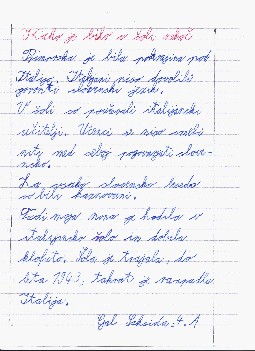 Kako je bilo v šoli nekoč
Primorska je bila priključena pod
Italijo. Italijani niso dovolili
govoriti slovenski jezik.
V šoli so poučevali italijanski
učitelji. Učenci se niso smeli
niti med seboj pogovarjati sloven-
sko.
Za vsako slovensko besedo
so bili kaznovani.
Tudi moja nona je hodila v
italijansko šolo in dobila
klofuto. Šola je trajala do
leta 1943, takrat je razpadla
Italija.
Gal Saksida, 4. A